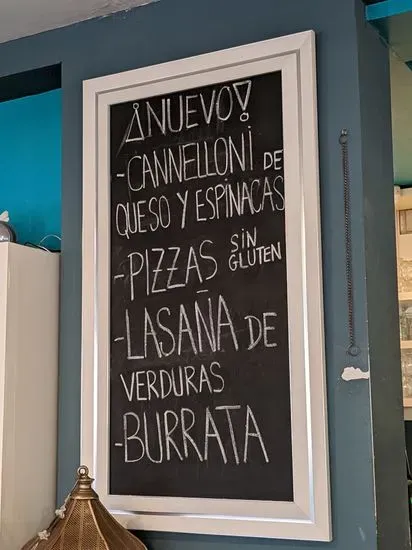 ¡NUEVO!
-CANNELLONI DE
QUESO Y ESPINACAS
-PIZZAS SIN GLUTEN
-LASAÑA DE
VERDURAS
-BURRATA